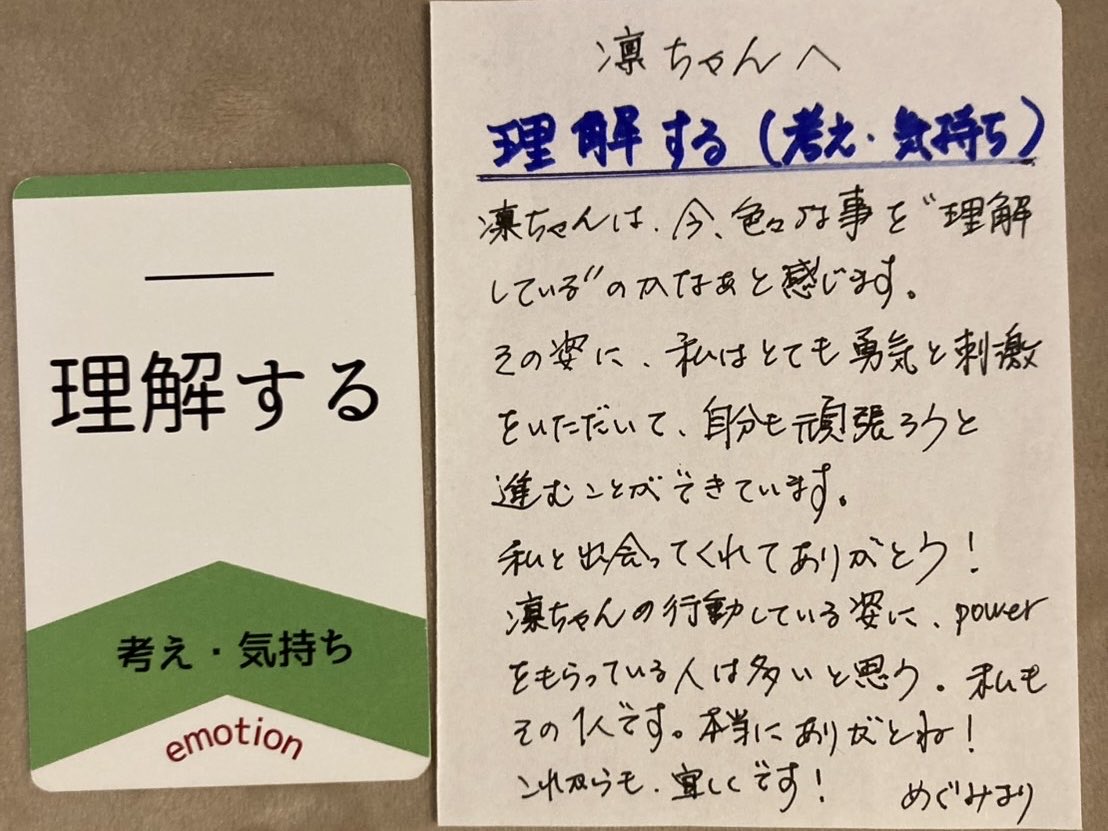 理解する
考え・気持ち
emotion
凛ちゃんへ
理解する(考え・気持ち)
凛ちゃんは、今、色々な事を"理解
している"のかなぁと感じます。
その姿に、私はとても勇気と刺激
をいただいて、自分も頑張ろうと
進むことができています。
私と出会ってくれてありがとう!
凛ちゃんの行動している姿に、power
をもらっている人は多いと思う。私も
その1人です。本当にありがとね!
これからも、宜しくです!
めぐみより